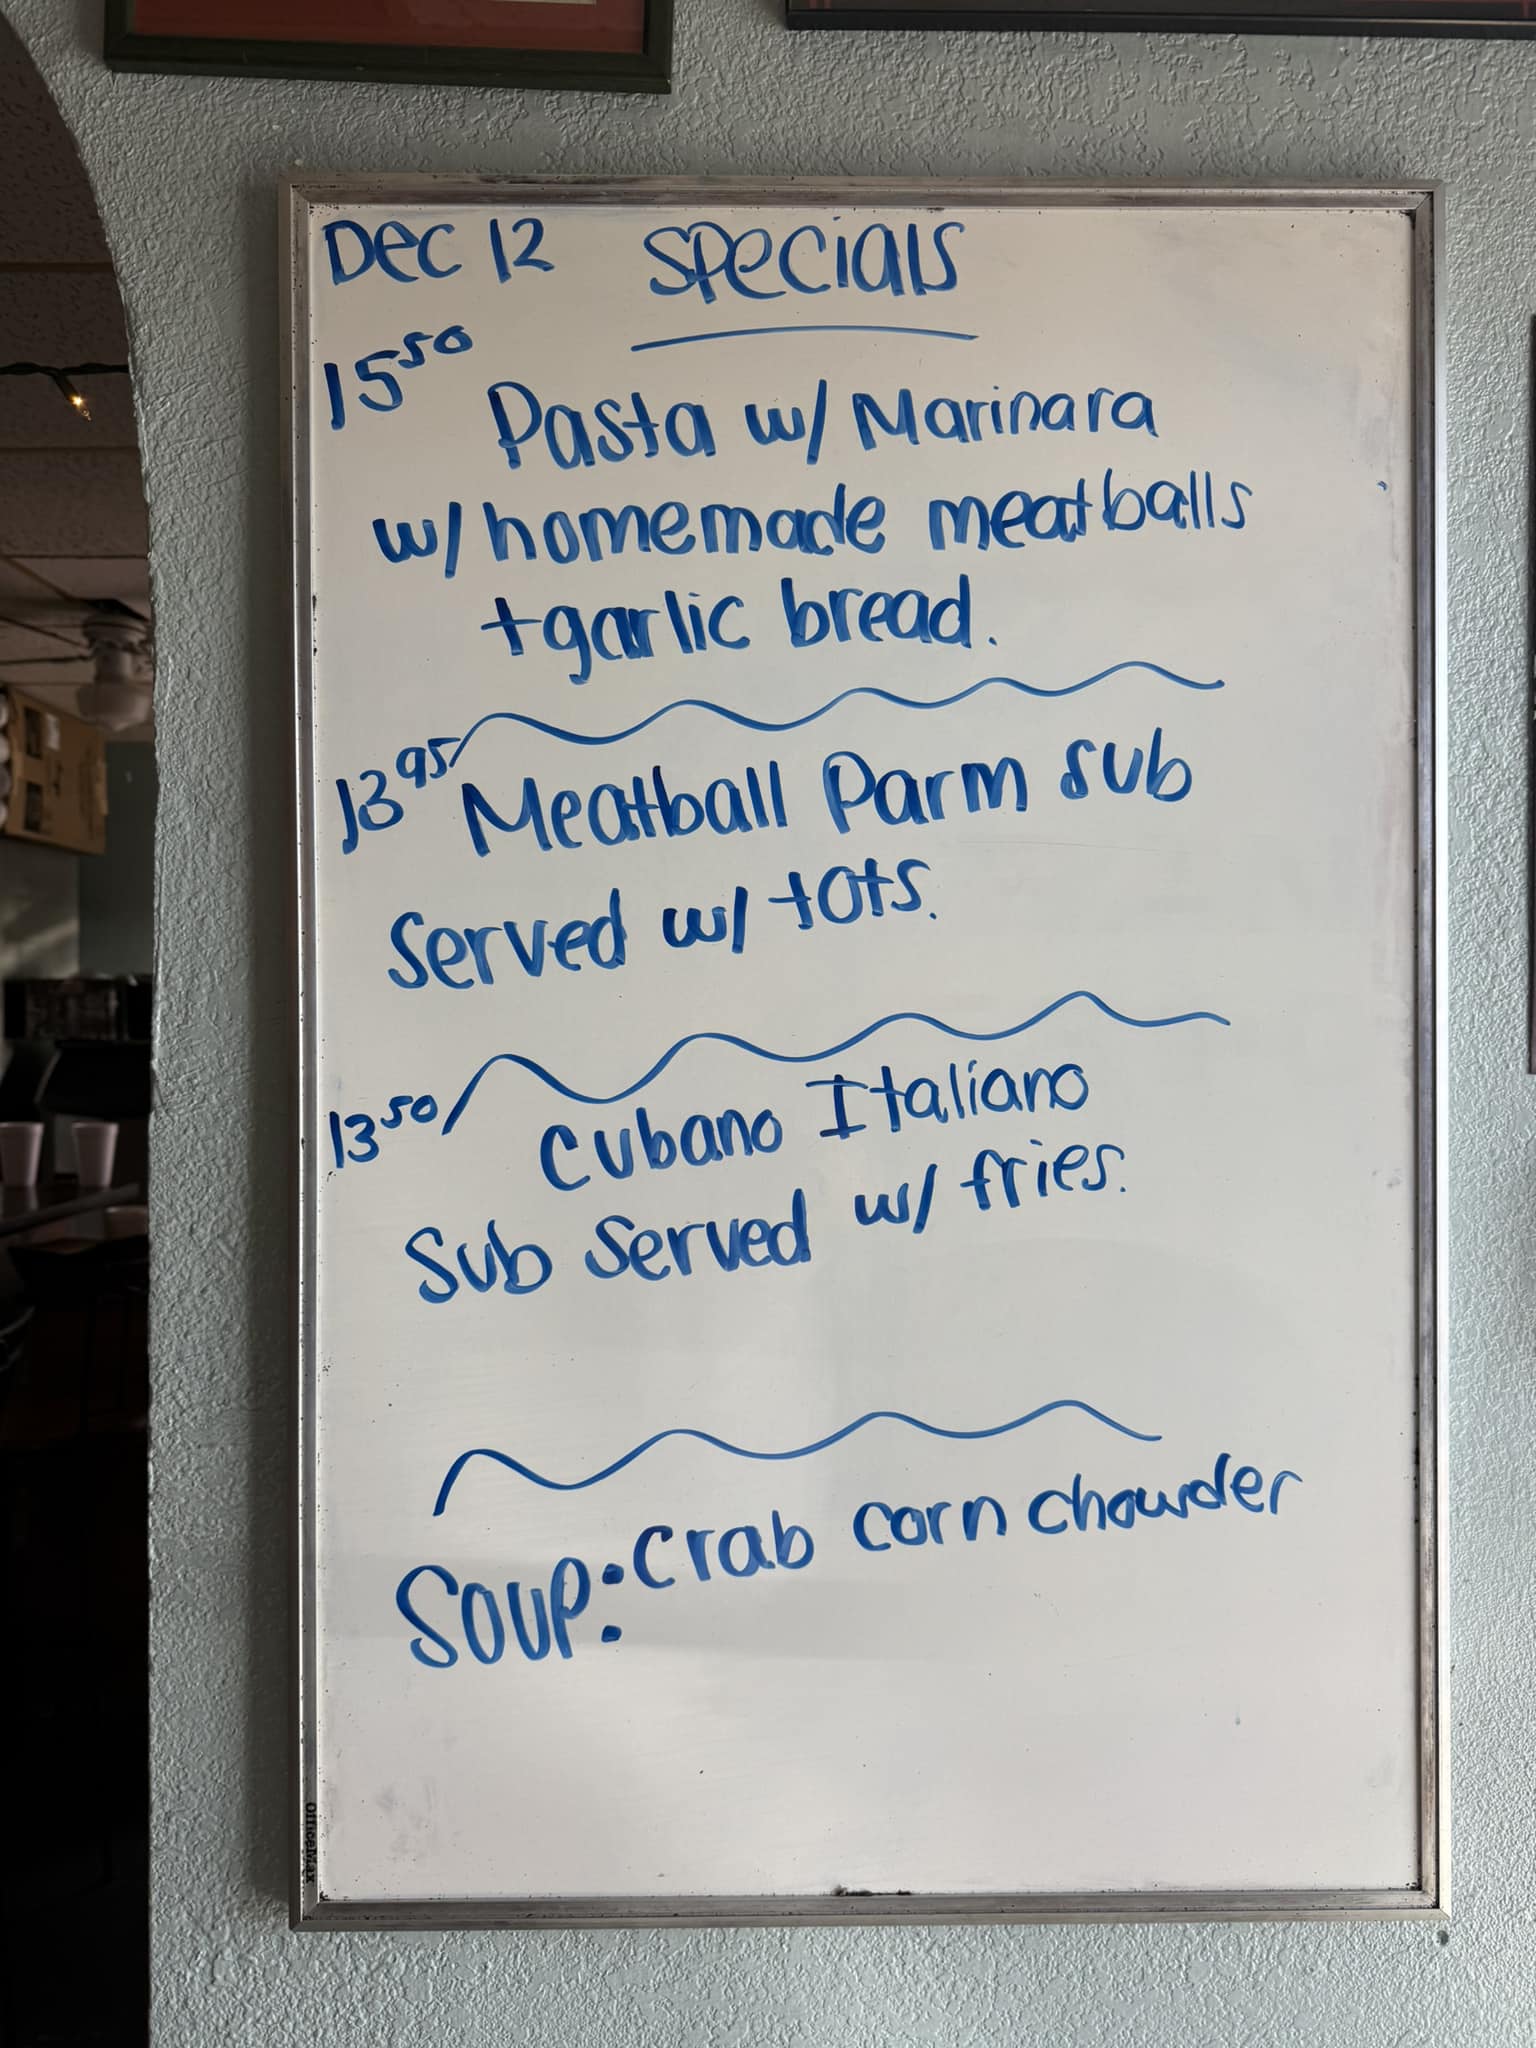 Dec 12 Specials
15⁵⁰
Pasta w/ Marinara
w/ homemade meatballs
+ garlic bread.
13⁹⁵ Meatball Parm Sub
Served w/ tots.
13⁵⁰ Cubano Italiano
Sub Served w/ fries.
Soup: Crab corn chowder
OfficeMax